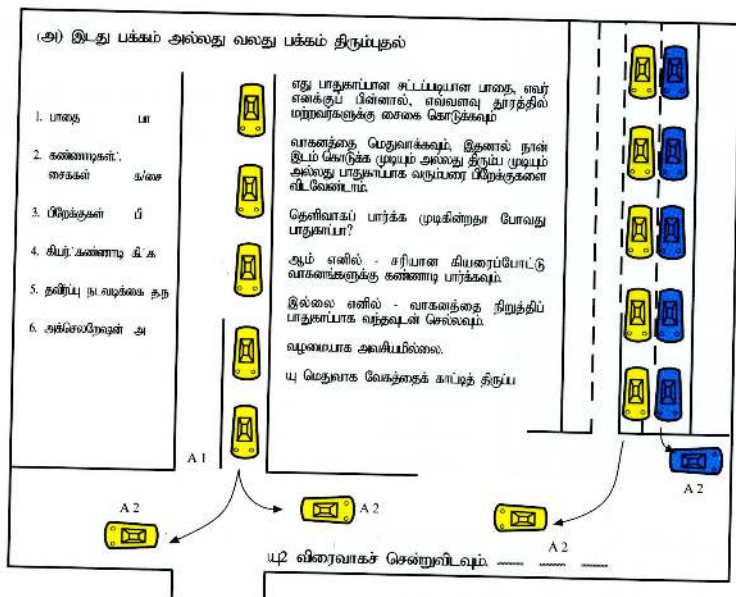 (அ) இடது பக்கம் அல்லது வலது பக்கம் திரும்புதல்
1. பாதை பா
2. கண்ணாடிகள்.
சைகைகள் க/சை
3. பிறேக்குகள் பி
4. கியர்.கண்ணாடி கி.க
5. தவிர்ப்பு நடவடிக்கை த.ந
6. அக்செலறேஷன் அ
எது பாதுகாப்பான சட்டப்படியான பாதை, எவர்
எனக்குப் பின்னால், எவ்வளவு தூரத்தில்
மற்றவர்களுக்கு சைகை கொடுக்கவும்
வாகனத்தை மெதுவாக்கவும், இதனால் நான்
இடம் கொடுக்க முடியும் அல்லது திரும்ப முடியும்
அல்லது பாதுகாப்பாக வரும்வரை பிறேக்குகளை
விடவேண்டாம்.
தெளிவாகப் பார்க்க முடிகின்றதா போவது
பாதுகாப்பா?
ஆம் எனில் - சரியான கியரைப்போட்டு
வாகனங்களுக்கு கண்ணாடி பார்க்கவும்.
இல்லை எனில் - வாகனத்தை நிறுத்திப்
பாதுகாப்பாக வந்தவுடன் செல்லவும்.
வழமையாக அவசியமில்லை.
யு மெதுவாக வேகத்தைக் காட்டித் திருப்ப
A 1
A 2
A 2
A 2
A 2
யு2 விரைவாகச் சென்றுவிடவும்.